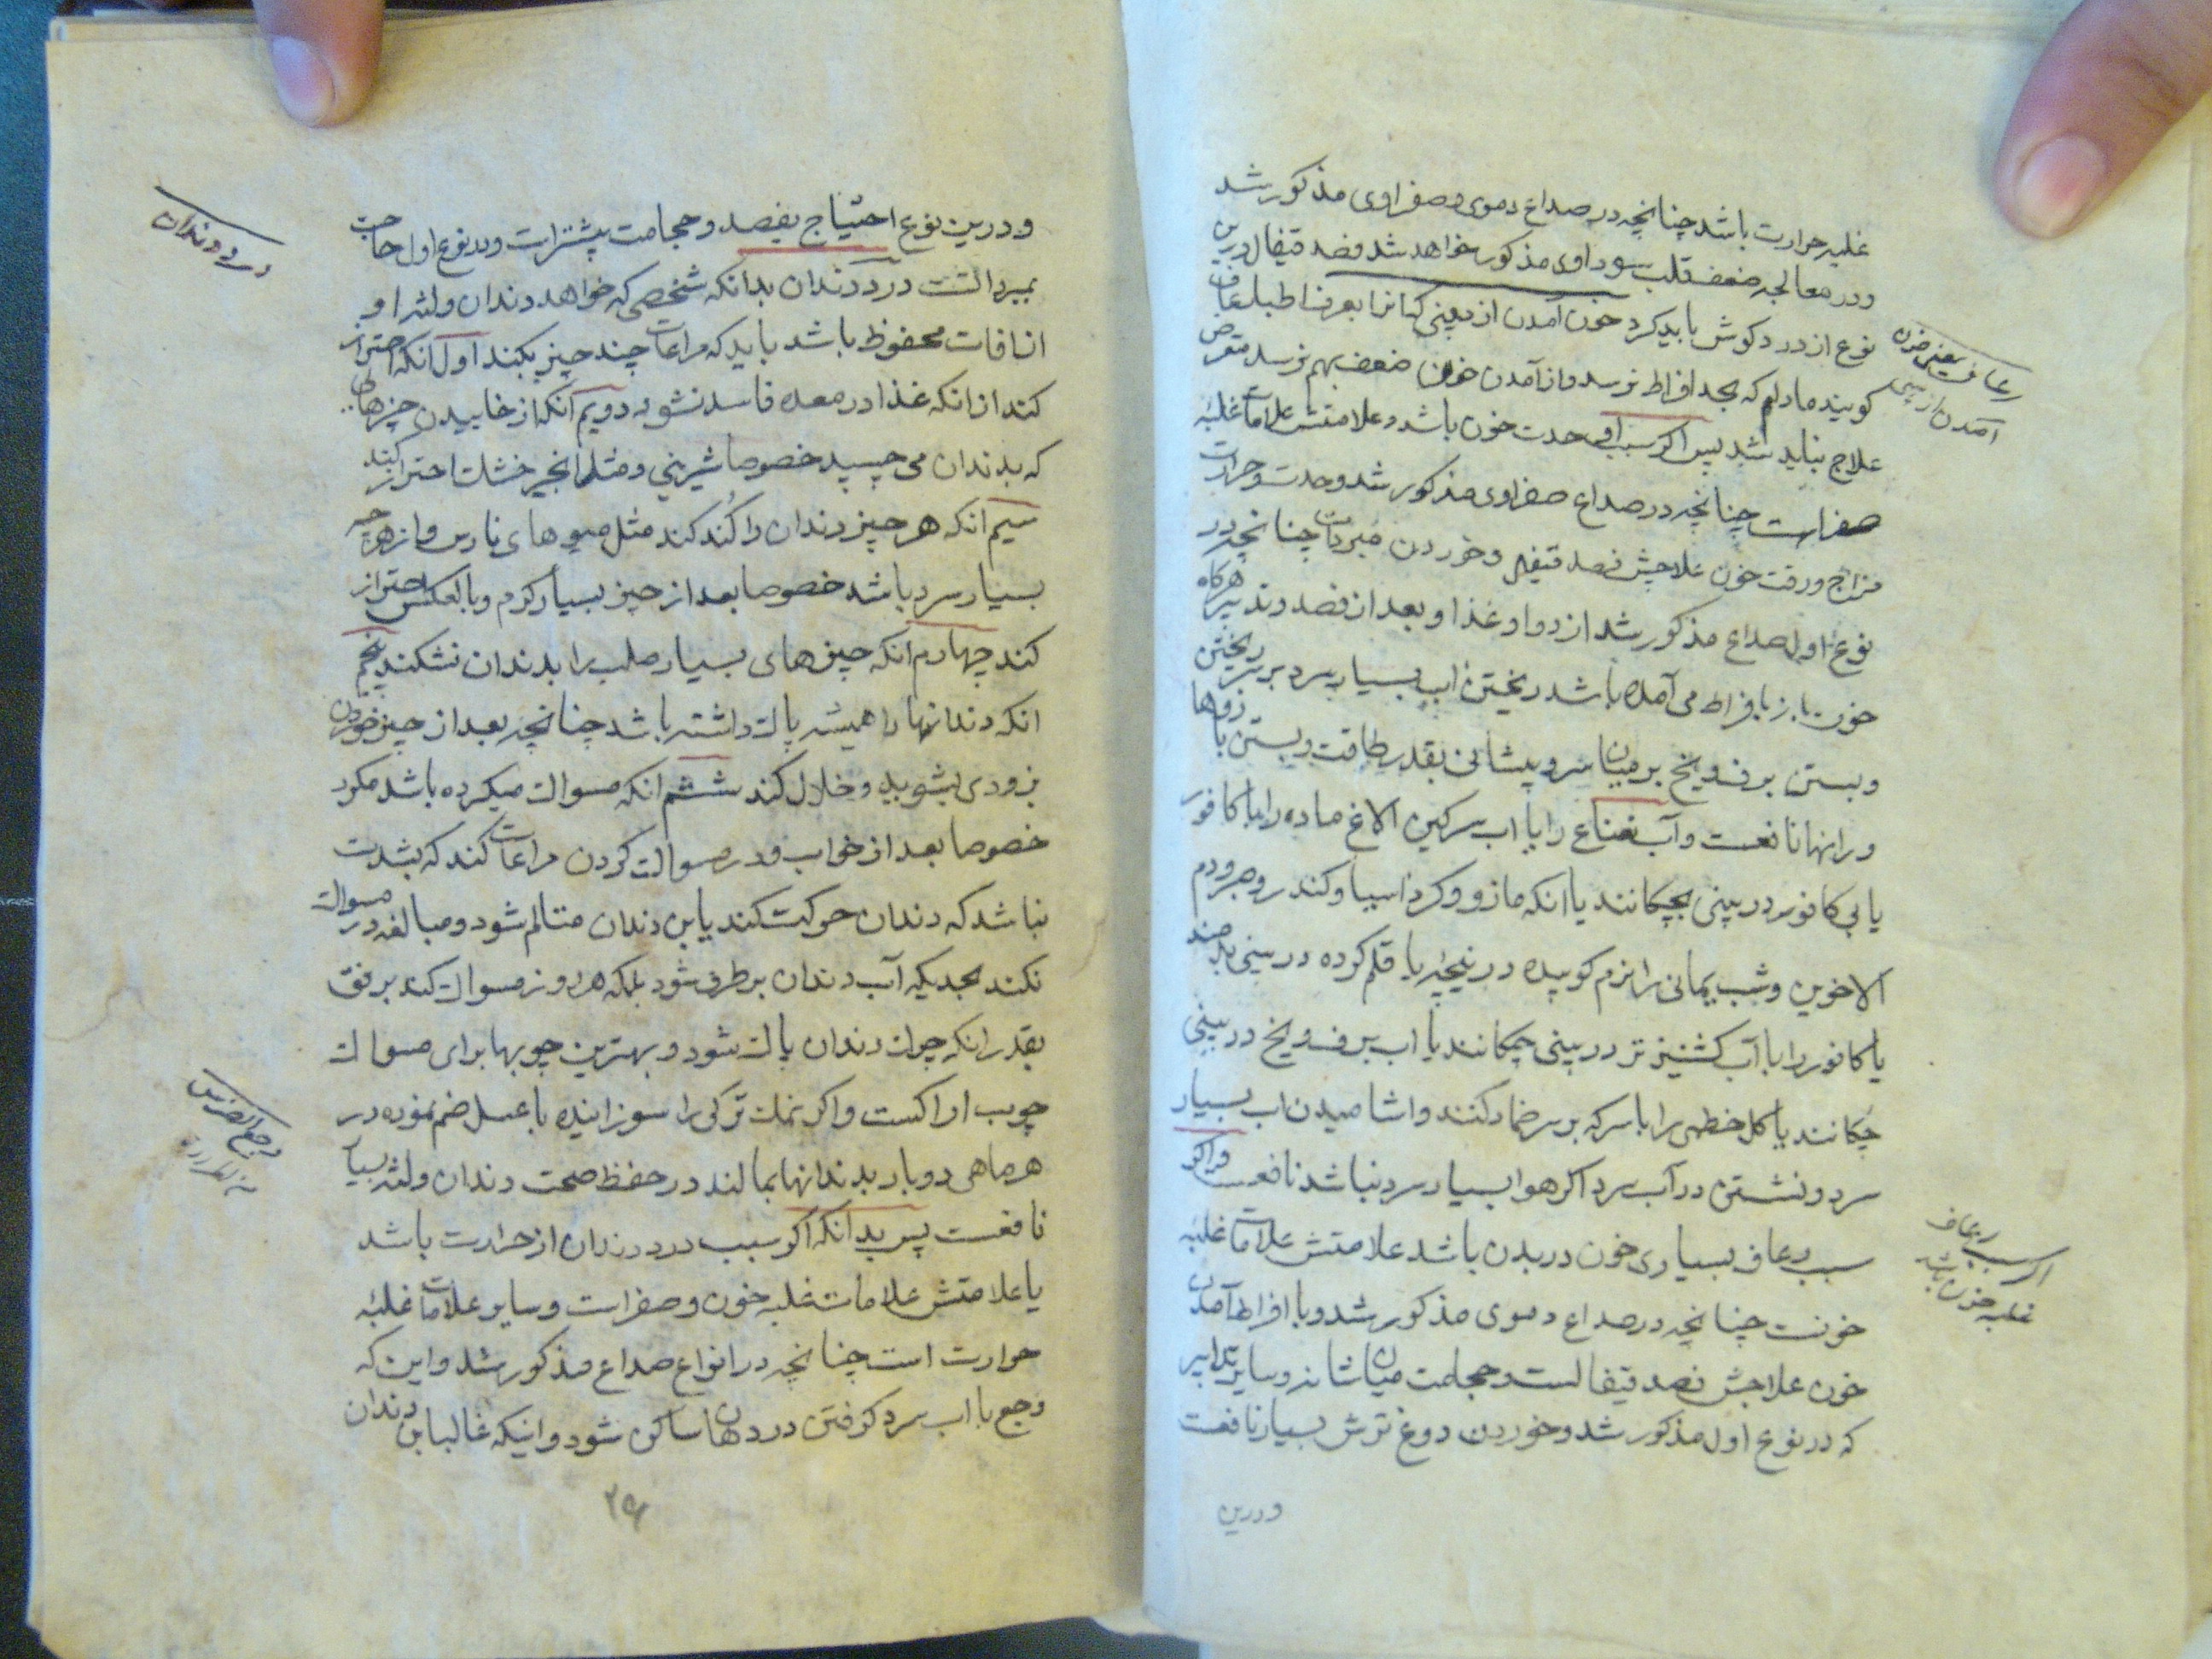 غلبه حرارت باشد چنانچه در صداع دموی و صفراوی مذکور شد
و در معالجه ضعف قلب سوداوی مذکور خواهد شد و فصد قیفال درین
نوع از درد کوش باید کرد خون آمدن از بینی که انرا بعرف اطبا رعاف
کویند مادام که بحد افراط نرسد و از آمدن خون ضعف بهم نرسد متعرض
علاج نباید شد پس اکر سبب او حدت خون باشد و علامتش علامات غلبهٔ
صفراست چنانچه در صداع صفراوی مذکور شد و حدت و حرارت
مزاج و رقت خون علاجش فصد قیفال و خوردن مبردات چنانچه در
نوع اول صداع مذکور شد از دوا و غذا و بعد از فصد و تدبیر هرکاه
خون باز بافراط می آمده باشد ریختن اب بسیار سرد بر سر ریختن
و بستن برف و یخ بر میان سر و پیشانی بقدر طاقت و بستن بازوها
و رانها نافعست و آب نعناع را یا اب سرکین الاغ ماده را با کافور
یا بی کافور در بینی بچکانند یا انکه مازو و کرد اسیا و کندر و صبر و دم
الاخوین و شب یمانی را نرم کوبیده در نیچهٔ یا قلم کرده در بینی بدمند
یا کافور را با آب کشنیز تر در بینی چکانند یا اب برف و یخ در بینی
چکانند یا کل خطمی را با سرکه بر سر ضماد کنند و اشامیدن اب بسیار
سرد و نشستن در آب سرد اکر هوا بسیار سرد نباشد نافعست و اکر
سبب رعاف بسیاری خون در بدن باشد علامتش علامات غلبه
خونست چنانچه در صداع دموی مذکور شد و با افراط آمدن
خون علاجش فصد قیفالست و حجامت میان شانه و سایر تدابیر
که در نوع اول مذکور شد و خوردن دوغ ترش بسیار نافعست
و درین
رعاف یعنی خون
آمدن از بینی
اکر سبب رعاف
غلبه خون باشد
و درین نوع احتیاج بفصد و حجامت بیشتر است و در نوع اول حاجت
بمبرداتست درد دندان بدانکه شخصی که خواهد دندان و لثه او
از افات محفوظ باشد باید که مراعات چند چیز بکند اول انکه احتراز
کند از انکه غذا در معده فاسد نشود دویم آنکه از خاییدن چیزهای
که بدندان می چسپد خصوصا شیرینی و مثل انجیر خشک احتراز کند
سیم انکه هر چیز دندان را کُند کند مثل میوهای نارس و از هرچه
بسیار سرد باشد خصوصا بعد از چیز بسیار کرم و بالعکس احتراز
کند چهارم انکه چیزهای بسیار صلب را بدندان نشکند پنجم
انکه دندانها را همیشه پاک داشته باشد چنانچه بعد از چیز خوردن
بزودی بشوید و خلال کند ششم انکه مسواک میکرده باشد مکرر
خصوصا بعد از خواب و در مسواک کردن مراعات کند که بشدت
نباشد که دندان حرکت کند یا بن دندان متالم شود و مبالغه در مسواک
نکند بحدیکه آب دندان برطرف شود بلکه هر روز مسواک کند برفق
بقدر انکه چرک دندان پاک شود و بهترین چوبها برای مسواک
چوب اراکست و اکر نمک ترکی را سوزانیده با عسل ضم نموده در
هر ماهی دو بار بدندانها بمالند در حفظ صحت دندان و لثه بسیار
نافعست پس بدانکه اکر سبب درد دندان از حرارت باشد
یا علامتش علامات غلبه خون و صفراست و سایر علامات غلبهٔ
حرارت است چنانچه در انواع صداع مذکور شد و این که
وجع با اب سرد کرفتن در دهان ساکن شود و انیکه غالبا بن دندان
درد دندان
وجع الضرس